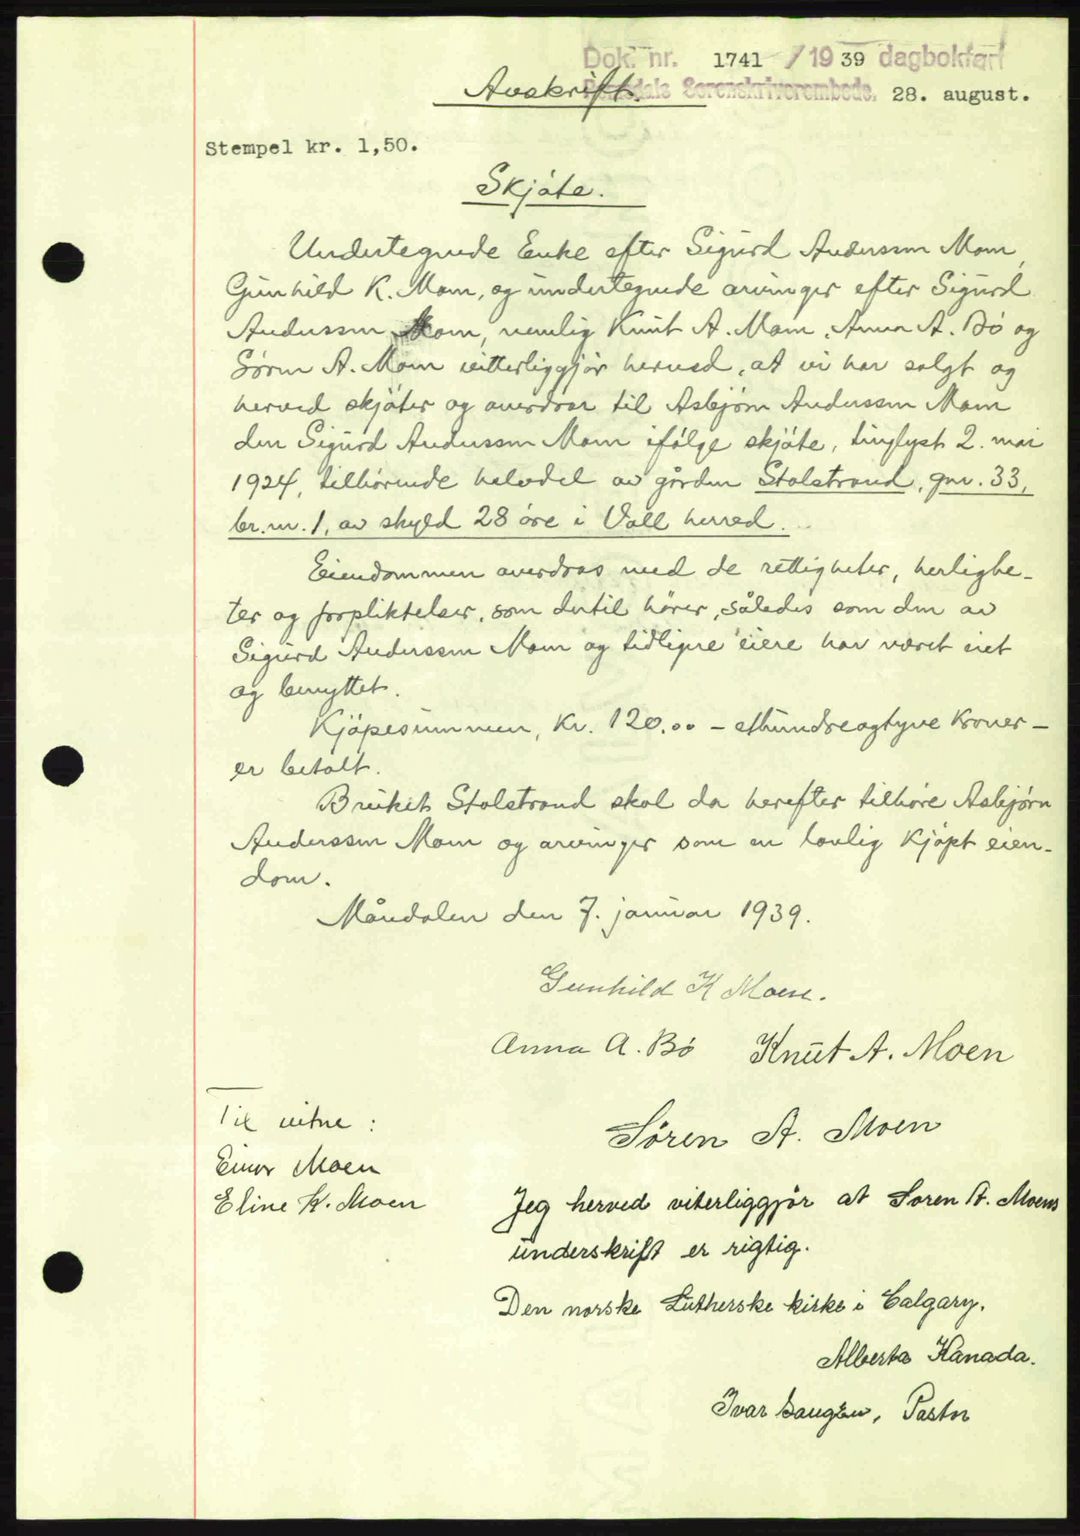 Dok. nr. 1741 / 1939 dagbokført
Avskrift.
Romsdals Sorenskriverembede. 28. august.
Stempel kr. 1,50.
Skjøte.
Undertegnede Enke efter Sigurd Anderssen Moen,
Gunhild K. Moen, og undertegnede arvinger efter Sigurd
Anderssen Moen, nemlig Knut A. Moen, Anna A. Bö og
Sören A. Moen vitterliggjör herved, at vi har solgt og
herved skjöter og overdrar til Asbjörn Anderssen Moen
den Sigurd Anderssen Moen ifölge skjöte, tinglyst 2. mai
1924, tilhörende halvdel av gården Stolstrand, gnr. 33,
br.nr. 1, av skyld 28 öre i Voll herred.
Eiendommen overdras med de rettigheter, herlighe-
ter og forpliktelser, som dertil hörer, således som den av
Sigurd Anderssen Moen og tidligere eiere har været eiet
og benyttet.
Kjöpesummen, kr. 120.00 - etthundreogtyve kroner -
er betalt.
Bruket Stolstrand skal da herefter tilhöre Asbjörn
Anderssen Moen og arvinger som en lovlig kjöpt eien-
dom.
Måndalen den 7. januar 1939.
Gunhild K Moen.
Anna A. Bö Knut A. Moen
Til vitne :
Søren A. Moen
Einar Moen
Eline K. Moen
Jeg herved viterliggjør at Soren A. Moens
underskrift er rigtig.
Den norske Lutherske kirke i Calgary.
Alberta Kanada.
Ivar Saugen, Pastor